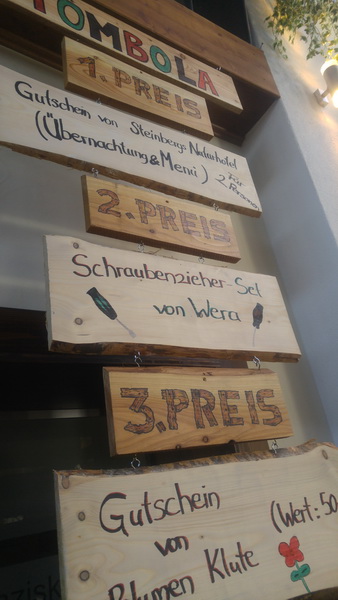 TOMBOLA
1. PREIS
Gutschein von Steinbergs Naturhotel
(Übernachtung & Menü) für
2 Personen
2. PREIS
Schraubenzieher-Set
von Wera
3. PREIS
Gutschein
von (Wert: 50
Blumen Klute